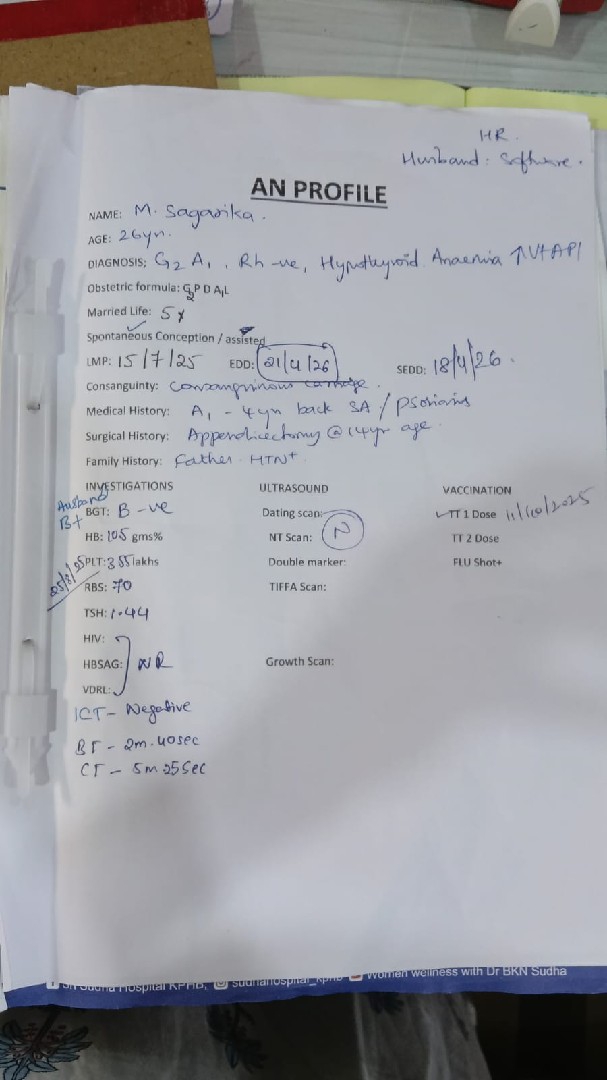 HR.
Husband: Software.
AN PROFILE
NAME: M. Sagarika.
AGE: 26yr.
DIAGNOSIS: G2 A1, Rh -ve, Hypothyroid. Anaemia ↑UtAPI
Obstetric formula: G2 P D A1 L
Married Life: 5y
Spontaneous Conception / assisted
LMP: 15/7/25 EDD: 21/4/26 SEDD: 18/4/26.
Consanguinty: Consanguinous
Medical History: A1 - 4yr back SA / Psoriasis
Surgical History: Appendicectomy @ 14yr age.
Family History: Father - HTN+
INVESTIGATIONS ULTRASOUND VACCINATION
Husband B+
BGT: B -ve Dating scan: TT 1 Dose 11/10/2025
HB: 10.5 gms% NT Scan: N TT 2 Dose
25/8/25 PLT: 3.55 lakhs Double marker: FLU Shot+
RBS: 70 TIFFA Scan:
TSH: 1.44
HIV:
HBSAG: NR Growth Scan:
VDRL:
ICT - Negative
BT - 2m. 40sec
CT - 5m 25Sec
Sudha Hospital KPHB, sudhahospital_kphb Women wellness with Dr BKN Sudha